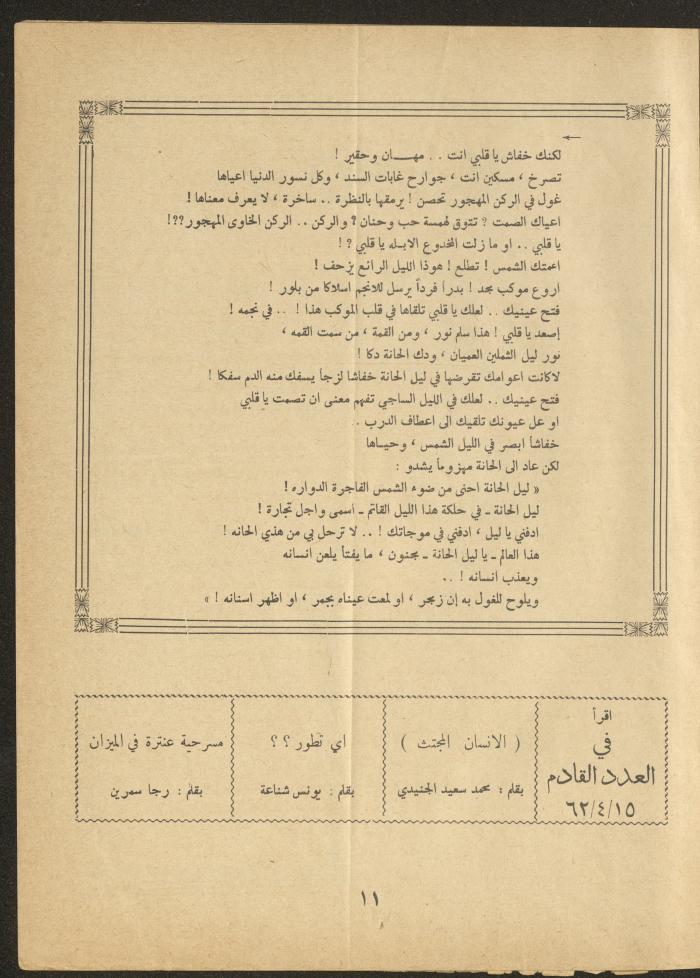 لكنك خفاش يا قلبي انت . . مهـــان وحقير !
تصرخ ، مسكين انت ، جوارح غابات السند ، وكل نسور الدنيا اعياها
غول في الركن المهجور تحصن ! يرمقها بالنظرة . . ساخرة ، لا يعرف معناها !
اعياك الصمت ؟ تتوق لهمسة حب وحنان ؟ والركن . . الركن الخاوى المهجور ؟؟!
يا قلبي . . او ما زلت المخدوع الابــله يا قلبي ؟ !
اعمتك الشمس ! تطلع ! هوذا الليل الرائع يزحف !
اروع موكب مجد ! بدراً فرداً يرسل للانجم اسلاكا من بلور !
فتح عينيك . . لعلك يا قلبي تلقاها في قلب الموكب هذا ! . . في نجمه !
إصعد يا قلبي ! هذا سلم نور ، ومن القمة ، من سمت القمه ،
نور ليل الثملين العميان ، ودك الحانة دكا !
لاكانت اعوامك تقرضها في ليل الحانة خفاشا لزجاً يسفك منه الدم سفكا !
فتح عينيك . . لعلك في الليل الساجي تفهم معنى ان تصمت يا قلبي
او عل عيونك تلقيك الى اعطاف الدرب .
خفاشاً ابصر في الليل الشمس ، وحيــاها
لكن عاد الى الحانة مهزوماً يشدو :
« ليل الحانة احنى من ضوء الشمس الفاجرة الدواره !
ليل الحانة ـ في حلكة هذا الليل القاتم ـ اسمى واجل تجارة !
ادفني يا ليل ، ادفني في موجاتك ! . . لا ترحل بي من هذي الحانه !
هذا العالم ـ يا ليل الحانة ـ مجنون ، ما يفتأ يلعن انسانه
ويعذب انسانه ! . .
ويلوح للغول به إن زمجر ، او لمعت عيناه بجمر ، او اظهر اسنانه ! »
اقرأ
في
العدد القادم
٦٢/٤/١٥
( الانسان المجتث )
بقلم : محمد سعيد الجنيدي
اي تطور ؟ ؟
بقلم : يونس شناعة
مسرحية عنترة في الميزان
بقلم : رجا سمرين
١١